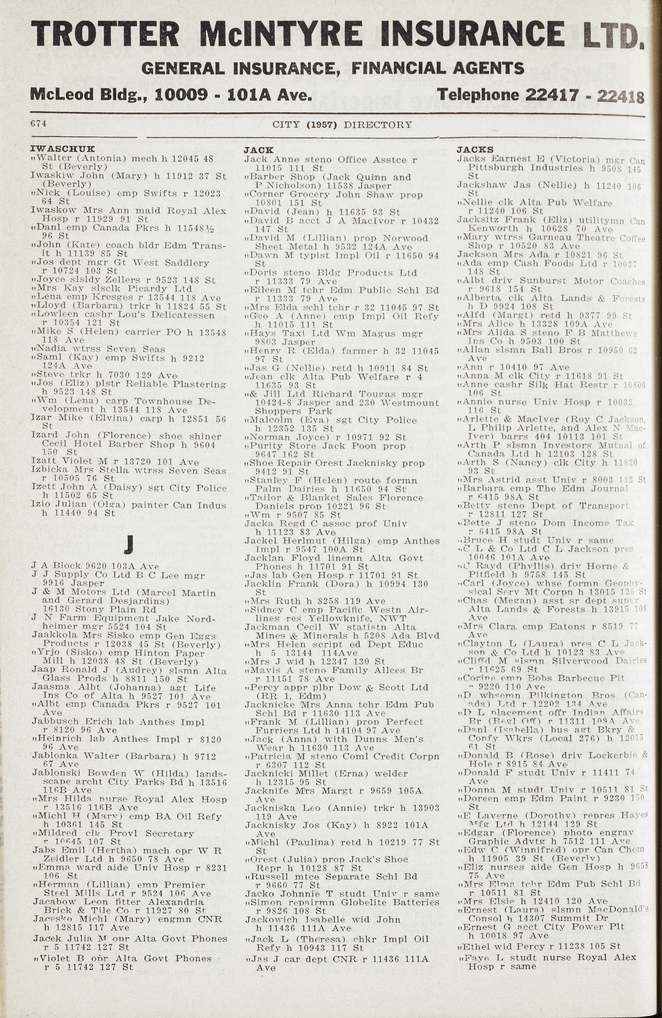 TROTTER McINTYRE INSURANCE LTD.
GENERAL INSURANCE, FINANCIAL AGENTS
McLeod Bldg., 10009 - 101A Ave. Telephone 22417 - 22418
674 CITY (1957) DIRECTORY
IWASCHUK
"Walter (Antonia) mech h 12045 48
St (Beverly)
Iwaskiw John (Mary) h 11912 37 St
(Beverly)
"Nick (Louise) emp Swifts r 12023
64 St
Iwaskow Mrs Ann maid Royal Alex
Hosp r 11929 91 St
"Danl emp Canada Pkrs h 11548½
96 St
"John (Kate) coach bldr Edm Trans-
it h 11139 85 St
"Jos dept mgr Gt West Saddlery
r 10724 103 St
"Joyce slsldy Zellers r 9523 148 St
"Mrs Kay slsclk Picardy Ltd
"Lena emp Kresges r 13544 118 Ave
"Lloyd (Barbara) trkr h 11824 55 St
"Lowleen cashr Lou's Delicatessen
r 10354 121 St
"Mike S (Helen) carrier PO h 13548
118 Ave
"Nadia wtrss Seven Seas
"Saml (Kay) emp Swifts h 9212
124A Ave
"Steve trkr h 7030 129 Ave
"Jos (Eliz) plstr Reliable Plastering
h 9523 148 St
"Wm (Lena) carp Townhouse De-
velopment h 13544 118 Ave
Izar Mike (Elvina) carp h 12851 56
St
Izard John (Florence) shoe shiner
Cecil Hotel Barber Shop h 9604
150 St
Izatt Violet M r 13720 101 Ave
Izbicka Mrs Stella wtrss Seven Seas
r 10505 76 St
Izett John A (Daisy) sgt City Police
h 11502 65 St
Izio Julian (Olga) painter Can Indus
h 11440 94 St
J
J A Block 9620 103A Ave
J J Supply Co Ltd B C Lee mgr
9916 Jasper
J & M Motors Ltd (Marcel Martin
and Gerard Desjardins)
16130 Stony Plain Rd
J N Farm Equipment Jake Nord-
heimer mgr 5524 104 St
Jaakkola Mrs Sisko emp Gen Eggs
Products r 12038 45 St (Beverly)
"Yrjo (Sisko) emp Hinton Paper
Mill h 12038 48 St (Beverly)
Jaap Ronald J (Audrey) slsmn Alta
Glass Prods h 8811 150 St
Jaasma Albt (Johanna) agt Life
Ins Co of Alta h 9527 101 Ave
"Albt emp Canada Pkrs r 9527 101
Ave
Jabbusch Erich lab Anthes Impl
r 8120 96 Ave
"Heinrich lab Anthes Impl r 8120
96 Ave
Jablonka Walter (Barbara) h 9712
67 Ave
Jablonski Bowden W (Hilda) lands-
scape archt City Parks Bd h 13516
116B Ave
"Mrs Hilda nurse Royal Alex Hosp
r 13516 116B Ave
"Michl H (Mary) emp BA Oil Refy
h 10361 145 St
"Mildred clk Provl Secretary
r 10645 107 St
Jabs Emil (Hertha) mach opr W R
Zeidler Ltd h 9650 78 Ave
"Emma ward aide Univ Hosp r 8231
106 St
"Herman (Lillian) emp Premier
Steel Mills Ltd r 9524 106 Ave
Jacabow Leon fitter Alexandria
Brick & Tile Co r 11927 80 St
Jacesko Michl (Mary) engmn CNR
h 12815 117 Ave
Jacek Julia M opr Alta Govt Phones
r 5 11742 127 St
"Violet B opr Alta Govt Phones
r 5 11742 127 St
JACK
Jack Anne steno Office Asstce r
11015 111 St
"Barber Shop (Jack Quinn and
P Nicholson) 11538 Jasper
"Corner Grocery John Shaw prop
10801 151 St
"David (Jean) h 11635 93 St
"David B acct J A MacIvor r 10432
147 St
"David M (Lillian) prop Norwood
Sheet Metal h 9532 124A Ave
"Dawn M typist Impl Oil r 11650 94
St
"Doris steno Bldg Products Ltd
r 11333 79 Ave
"Eileen M tchr Edm Public Schl Bd
r 11333 79 Ave
"Mrs Elda schl tchr r 32 11045 97 St
"Geo A (Anne) emp Impl Oil Refy
h 11015 111 St
"Hays Taxi Ltd Wm Magus mgr
9803 Jasper
"Henry R (Elda) farmer h 32 11045
97 St
"Jas G (Nellie) retd h 10911 84 St
"Jean clk Alta Pub Welfare r 4
11635 93 St
"& Jill Ltd Richard Tougas mgr
10424-8 Jasper and 230 Westmount
Shoppers Park
"Malcolm (Eva) sgt City Police
h 12352 135 St
"Norman Joyce) r 10971 92 St
"Purity Store Jack Poon prop
9647 162 St
"Shoe Repair Orest Jacknisky prop
9412 91 St
"Stanley F (Helen) route formn
Palm Dairies h 11650 94 St
"Tailor & Blanket Sales Florence
Daniels prop 10221 96 St
"Wm r 9507 85 St
Jacka Regd C assoc prof Univ
h 11123 83 Ave
Jackel Herlmut (Hilga) emp Anthes
Impl r 9547 100A St
Jacklan Floyd linemn Alta Govt
Phones h 11701 91 St
"Jas lab Gen Hosp r 11701 91 St
Jacklin Frank (Dora) h 10994 130
St
"Mrs Ruth h 8258 119 Ave
"Sidney C emp Pacific Westn Air-
lines res Yellowknife, NWT
Jackman Cecil W statistn Alta
Mines & Minerals h 5208 Ada Blvd
"Mrs Helen script ed Dept Educ
h 5 13144 114Ave
"Mrs J wid h 12347 130 St
"Mavis A steno Family Allces Br
r 11151 78 Ave
"Percy appr plbr Dow & Scott Ltd
(RR 1, Edm)
Jacknicke Mrs Anna tchr Edm Pub
Schl Bd r 11630 113 Ave
"Frank M (Lillian) prop Perfect
Furriers Ltd h 14104 97 Ave
"Jack (Anna) with Dunns Men's
Wear h 11630 113 Ave
"Patricia M steno Coml Credit Corpn
r 6307 112 St
Jacknicki Millet (Erna) welder
h 12315 95 St
Jacknife Mrs Margt r 9659 105A
Ave
Jackniska Leo (Annie) trkr h 13903
119 Ave
Jacknisky Jos (Kay) h 8922 101A
Ave
"Michl (Paulina) retd h 10219 77 St
St
"Orest (Julia) prop Jack's Shoe
Repr h 10128 87 St
"Russell mtce Separate Schl Bd
r 9660 77 St
Jacko Johnnie T studt Univ r same
"Simon repairmn Globelite Batteries
r 9826 108 St
Jackowich Isabelle wid John
h 11436 111A Ave
"Jack L (Theresa) chkr Impl Oil
Refy h 10943 117 St
"Jas J car dept CNR r 11436 111A
Ave
JACKS
Jacks Earnest E (Victoria) mgr Can
Pittsburgh Industries h 9508 145
St
Jackshaw Jas (Nellie) h 11240 106
St
"Nellie clk Alta Pub Welfare
r 11240 106 St
Jacksitz Frank (Eliz) utilitymn Can
Kenworth h 10628 70 Ave
"Mary wtrss Garneau Theatre Coffee
Shop r 10520 83 Ave
Jackson Mrs Ada r 10821 96 St
"Ada emp Cash Foods Ltd r 10037
148 St
"Albt driv Sunburst Motor Coaches
r 9618 154 St
"Alberta clk Alta Lands & Forests
h D 9924 108 St
"Alfd (Margt) retd h 9377 99 St
"Mrs Alice h 13328 109A Ave
"Mrs Alida S steno F B Matthews
Ins Co h 9503 100 St
"Allan slsmn Ball Bros r 10950 62
Ave
"Ann r 10410 97 Ave
"Anna M clk City r 11618 91 St
"Anne cashr Silk Hat Restr r 10806
106 St
"Annie nurse Univ Hosp r 10032
116 St
"Arlette & MacIver (Roy C Jackson,
L Philip Arlette, and Alex N Mac-
Iver) barrs 404 10113 101 St
"Arth P slsmn Investors Mutual of
Canada Ltd h 12103 128 St
"Arth S (Nancy) clk City h 11820
93 St
"Mrs Astrid asst Univ r 8003 112 St
"Barbara emp The Edm Journal
r 6415 98A St
"Betty steno Dept of Transport
r 12811 127 St
"Bette J steno Dom Income Tax
r 6415 98A St
"Bruce H studt Univ r same
"C L & Co Ltd C L Jackson pres
10046 101A Ave
"C Rayd (Phyllis) driv Horne &
Pitfield h 9758 145 St
"Carl (Joyce) whse formn Geophy-
sical Serv Mt Corpn h 13015 125 St
"Chas (Megan) asst sr dept supt
Alta Lands & Forests h 13915 108
Ave
"Mrs Clara emp Eatons r 8519 77
Ave
"Clayton L (Laura) pres C L Jack-
son & Co Ltd h 10123 83 Ave
"Cliffd M slsmn Silverwood Dairies
r 11625 69 St
"Corine emp Bobs Barbecue Pit
r 9220 110 Ave
"D whsemn Pilkington Bros (Can-
ada) Ltd r 12202 134 Ave
"D L placement offr Indian Affairs
Br (Regl Off) r 11311 109A Ave
"Danl (Isabella) bus agt Bkry &
Confy Wkrs (Local 276) h 12015
61 St
"Donald B (Rose) driv Lockerbie &
Hole r 8915 84 Ave
"Donald F studt Univ r 11411 74
Ave
"Donna M studt Univ r 10511 81 St
"Doreen emp Edm Paint r 9230 150
St
"E Laverne (Dorothy) repres Hayes
Mfg Ltd h 12144 129 St
"Edgar (Florence) photo engrav
Graphic Advtg h 7512 111 Ave
"Edw C (Winnifred) opr Can Chem
h 11905 39 St (Beverly)
"Eliz nurses aide Gen Hosp h 9658
75 Ave
"Mrs Elma tchr Edm Pub Schl Bd
r 10511 81 St
"Mrs Elsie h 12410 120 Ave
"Ernest (Laura) slsmn MacDonald's
Consol h 14307 Summit Dr
"Ernest G acct City Power Plt
h 10018 97 Ave
"Ethel wid Percy r 11238 105 St
"Faye L studt nurse Royal Alex
Hosp r same